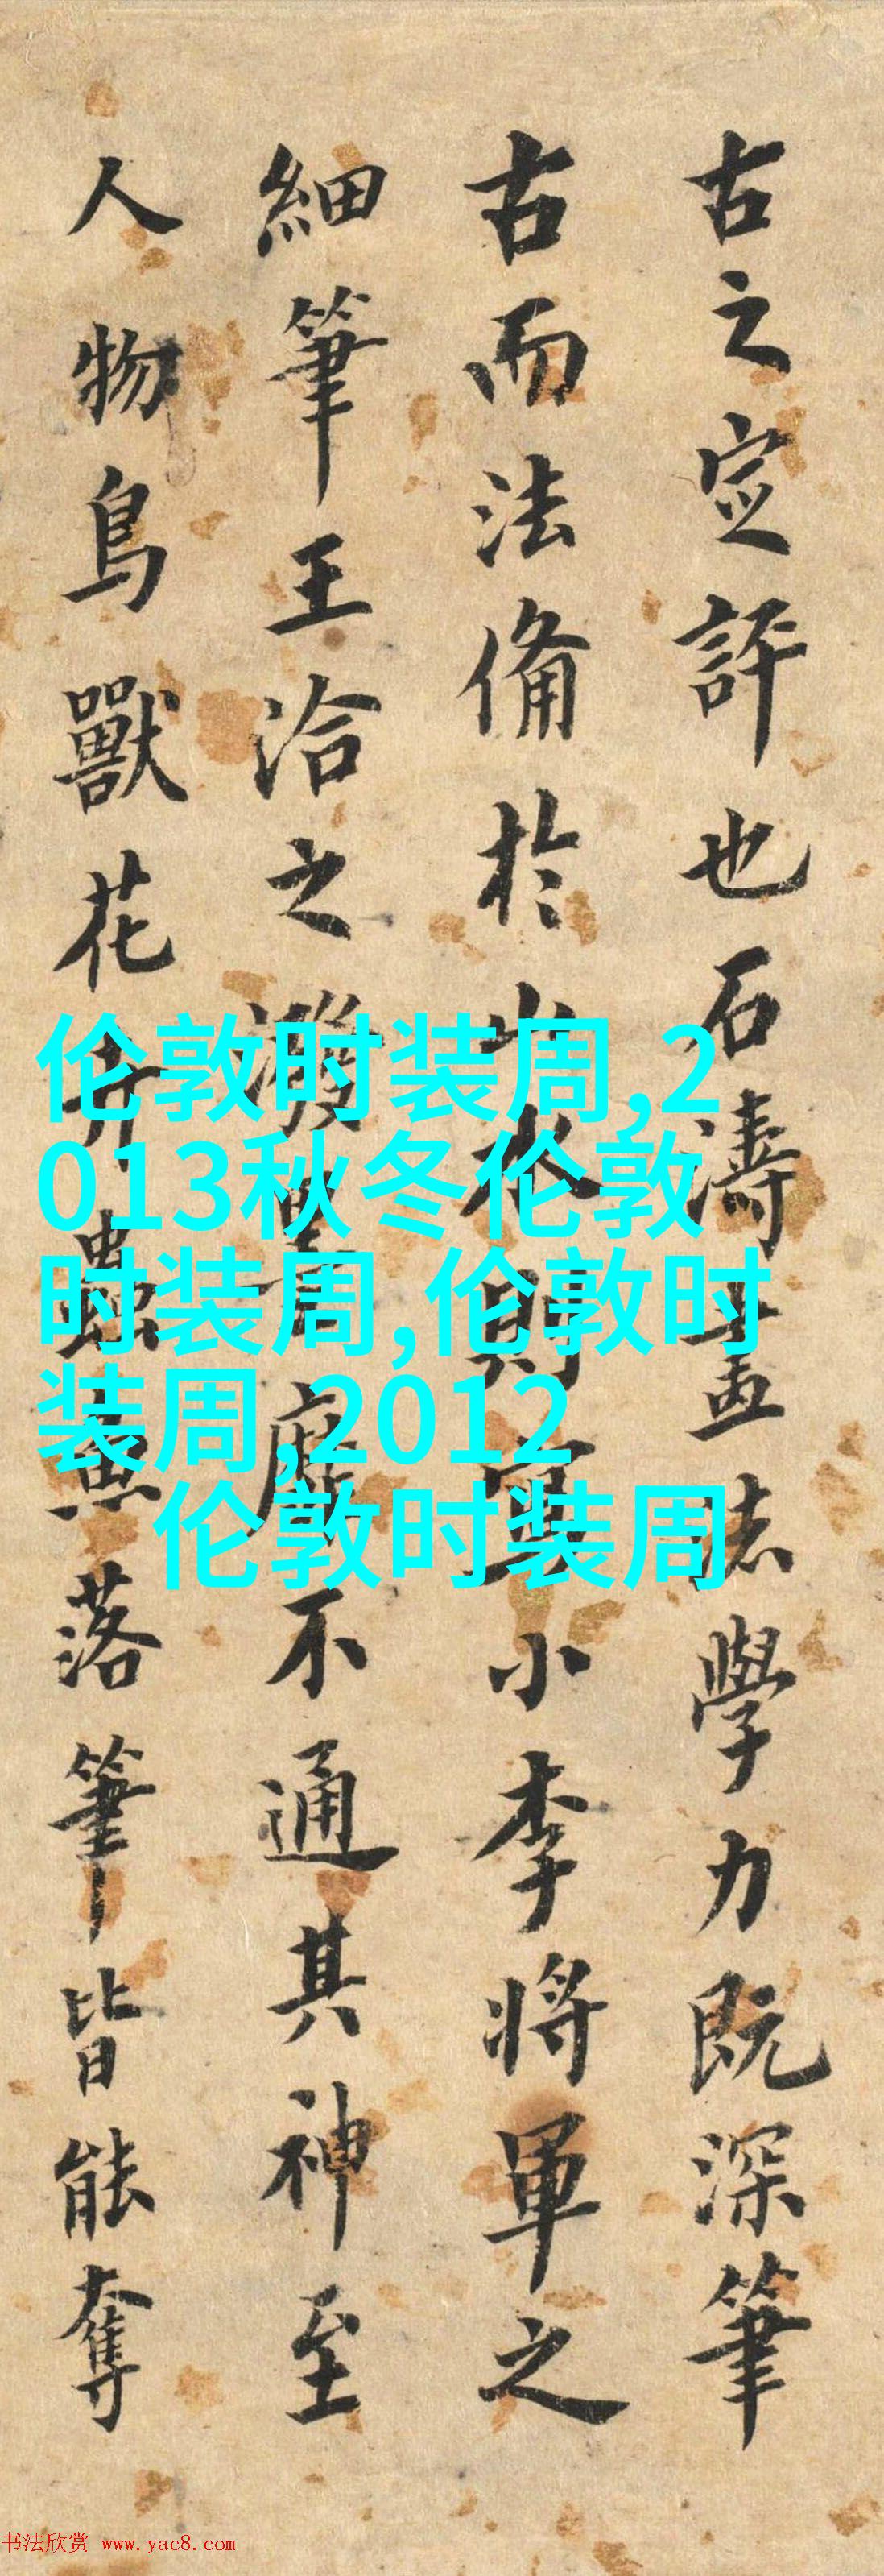 古之定評也石濤畫誌學力既深筆
古而法備於山水則寫小李將軍之
細筆王洽之潑墨靡不通其神至
人物鳥獸花卉蟲魚落筆皆能奪
伦敦时装周,2
013秋冬伦敦
时装周,伦敦时
装周,2012
伦敦时装周
书法欣赏 www.yac8.com